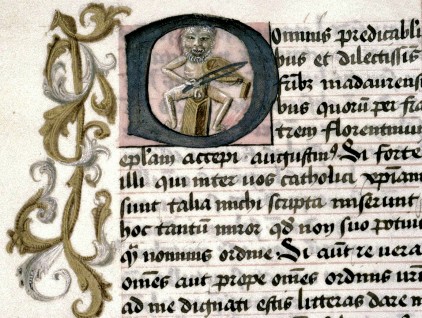 Dominis predicabili
bus et dilectissi
fribz madaurensi
bus quorū per fra
trem florentinum
epl'am accepi. augustin9. Si forte
illi qui inter uos catholici xpiani
sunt talia michi scripta miserunt
hoc tantum miror qd non suo potiu
qm nominis ordine. Si aūt re uera
omēs aut prope omēs ordinis uiri
ad me dignati estis litteras dare